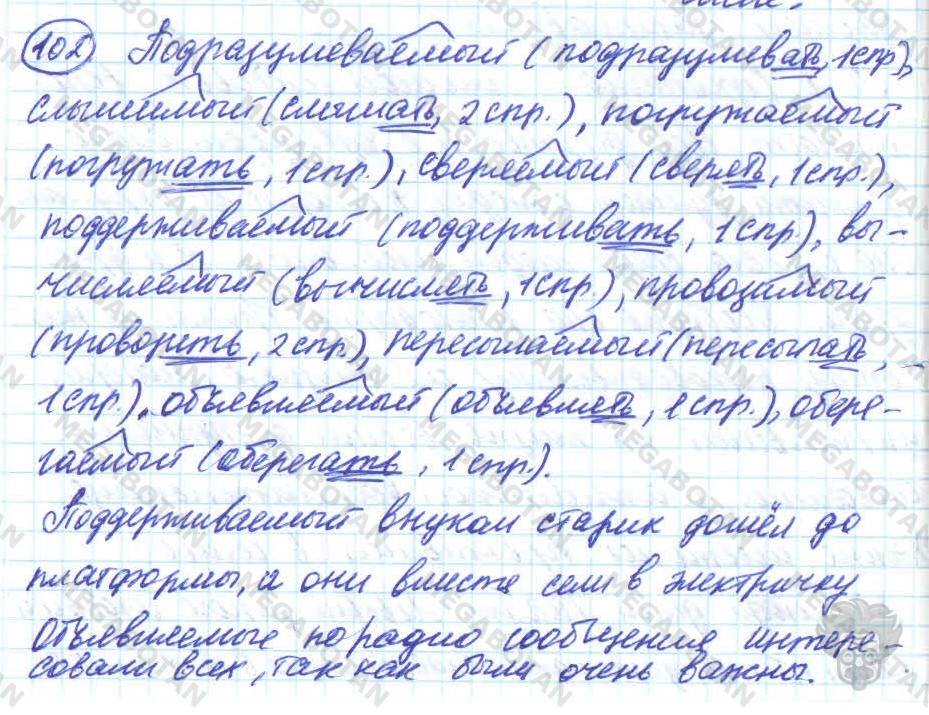 102 Подразумеваемый (подразумевать, 1 спр),
слышимый (слышать, 2 спр.), погружаемый
(погружать, 1 спр.), сверляемый (сверлять, 1 спр.),
поддерживаемый (поддерживать, 1 спр.), вы-
числяемый (вычислять, 1 спр.), провозимый
(провозить, 2 спр.), пересылаемый (пересылать,
1 спр.), объявляемый (объявлять, 1 спр.), обере-
гаемый (оберегать, 1 спр.).
Поддерживаемый внуком старик дошёл до
платформы, и они вместе сели в электричку
Объявляемые по радио сообщения интере-
совали всех, так как были очень важны.
MEGABOTAN